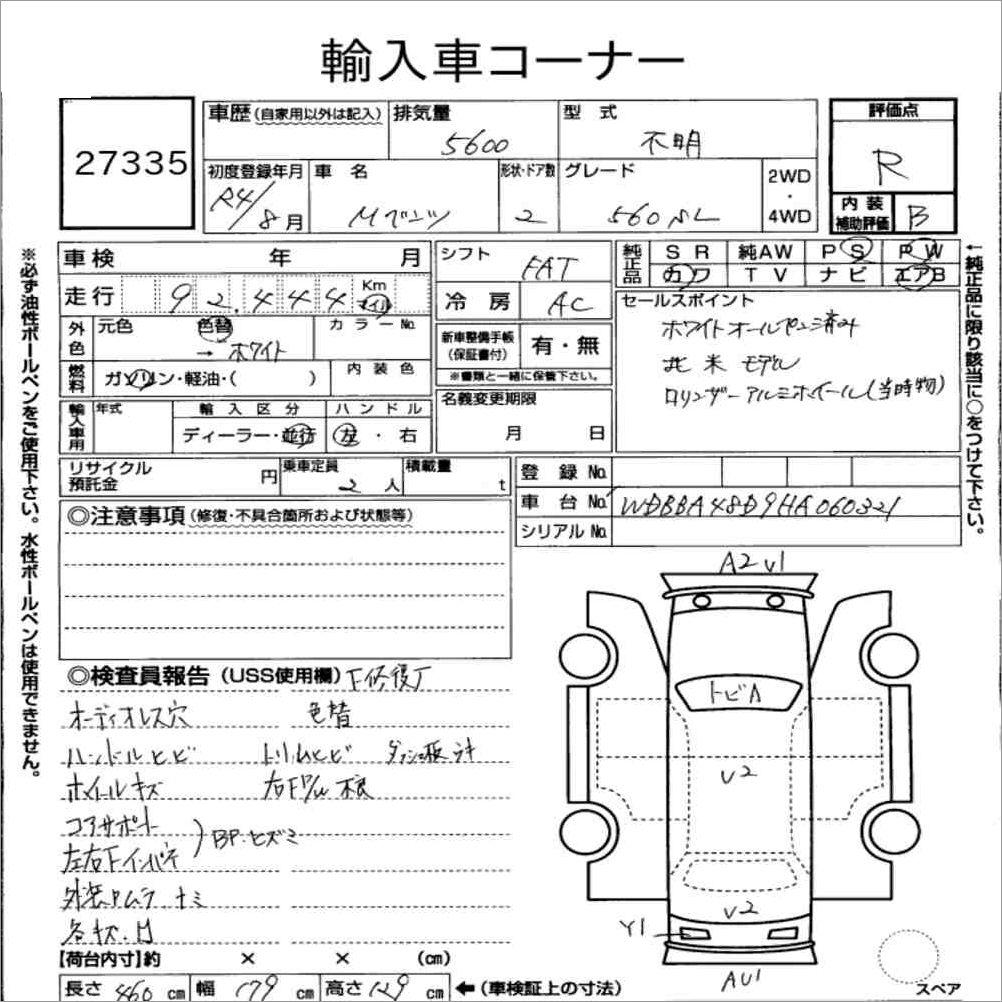 輸入車コーナー
27335
車歴(自家用以外は記入) 排気量 5600 型式 不明 評価点 R
初度登録年月 R4/8月 車名 Mベンツ 形状・ドア数 2 グレード 560SL 2WD・4WD 内装補助評価 B
車検 年 月 シフト FAT 純正品 SR 純AW PS PW
カワ TV ナビ エアB
走行 92,444 Km マイル 冷房 AC
セールスポイント
ホワイトオールペン済み
北米モデル
ロリンザーアルミホイール(当時物)
外色 元色 色替 → ホワイト カラーNo.
新車整備手帳(保証書付) 有・無
※書類と一緒に保管下さい。
燃料 ガソリン・軽油・( ) 内装色
名義変更期限 月 日
輸入車用 年式 輸入区分 ディーラー・並行 ハンドル 左・右
リサイクル預託金 円 乗車定員 2人 積載量 t
登録No.
車台No. WDBBA48D9HA060321
シリアルNo.
◎注意事項(修復・不具合箇所および状態等)
◎検査員報告(USS使用欄)
オーディオレス穴 色替
ハンドルヒビ トリムヒビ ダッシュ板ヨキ
ホイールキズ
コアサポート
左右Fインパネ )BP・ヒズミ
外装ムラ ナミ
各キズ・凹
A2 V1
トビA
V2
V2
Y1
AU1
スペア
【荷台内寸】約 × × (cm)
長さ 460 cm 幅 179 cm 高さ 129 cm ←(車検証上の寸法)
※必ず油性ボールペンをご使用下さい。水性ボールペンは使用できません。
←純正品に限り該当に○をつけて下さい。